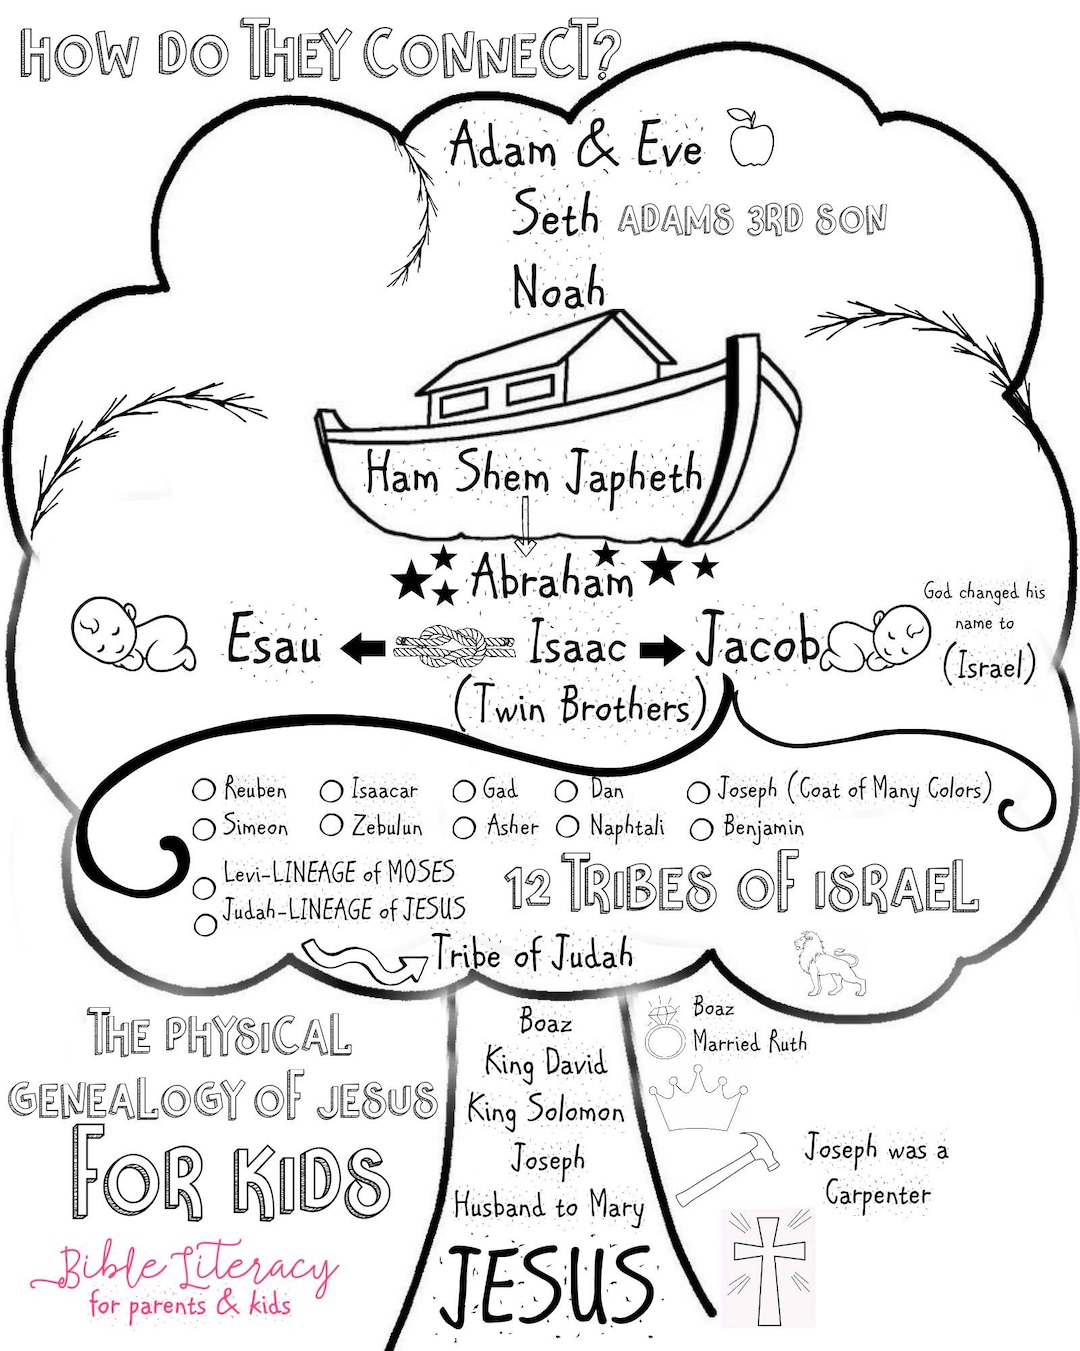 HOW DO THEY CONNECT?
Adam & Eve
Seth ADAMS 3RD SON
Noah
Ham Shem Japheth
Abraham
Esau Isaac Jacob
(Twin Brothers)
God changed his
name to
(Israel)
Reuben Isaacar Gad Dan Joseph (Coat of Many Colors)
Simeon Zebulun Asher Naphtali Benjamin
Levi-LINEAGE of MOSES
Judah-LINEAGE of JESUS
12 TRIBES OF ISRAEL
Tribe of Judah
Boaz
King David
King Solomon
Joseph
Husband to Mary
JESUS
Boaz
Married Ruth
Joseph was a
Carpenter
THE PHYSICAL
GENEALOGY OF JESUS
FOR KIDS
Bible Literacy
for parents & kids